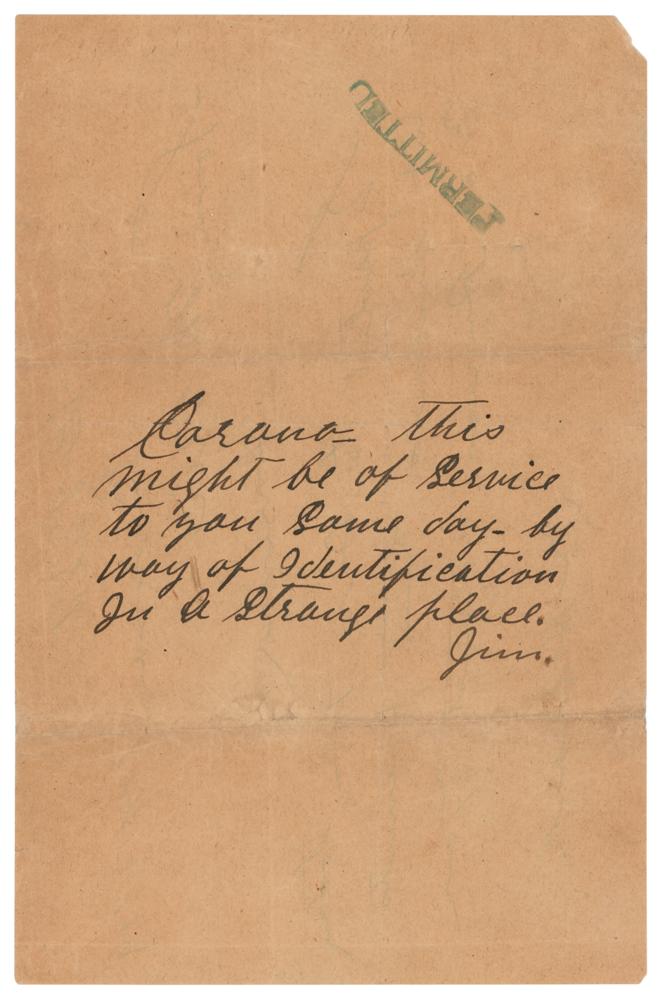 PERMITTED
Corona- this
might be of Service
to you Some day- by
way of Identification
In A Strange place.
Jim.